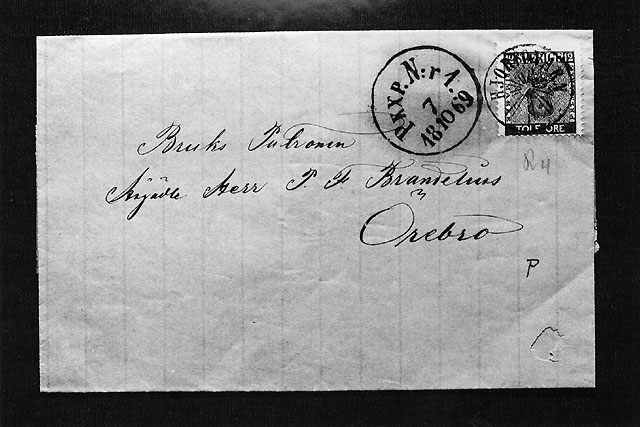 PKXP. N:r 1.
7
10
1869
SVERIGE 12
TOLF ÖRE
Bruks Patronen
Herr P. F Brandelius
Örebro
R 4
P